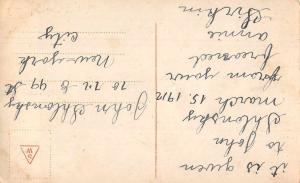 it is given
to John
Shlonsky
march 15. 1912
from your
freand
annie
John Shlonsky
E 99 St
New-york
City